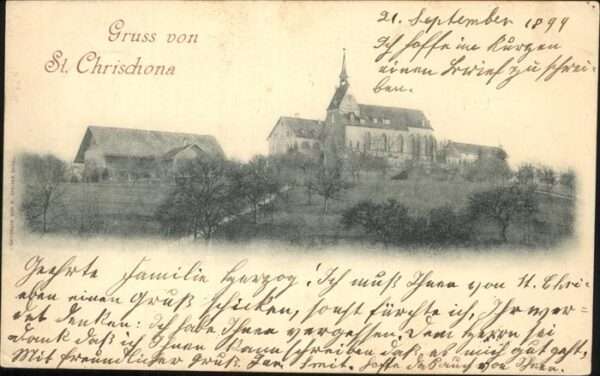 Gruss von
St. Chrischona
21. September 1899
Ich hoffe im Kurzen
einen Brief zu schrei-
ben.
Geehrte Familie Herzog! Ich muß Ihnen von St. Chri-
eben einen Gruß schicken, sonst fürchte ich, Ihr wer-
det denken: Ich habe Ihnen vergessen. Dem Herrn sei
Dank daß ich Ihnen kann schreiben daß es mir gut geht,
Mit freundlicher Gruß hoffe das auch von Ihnen.